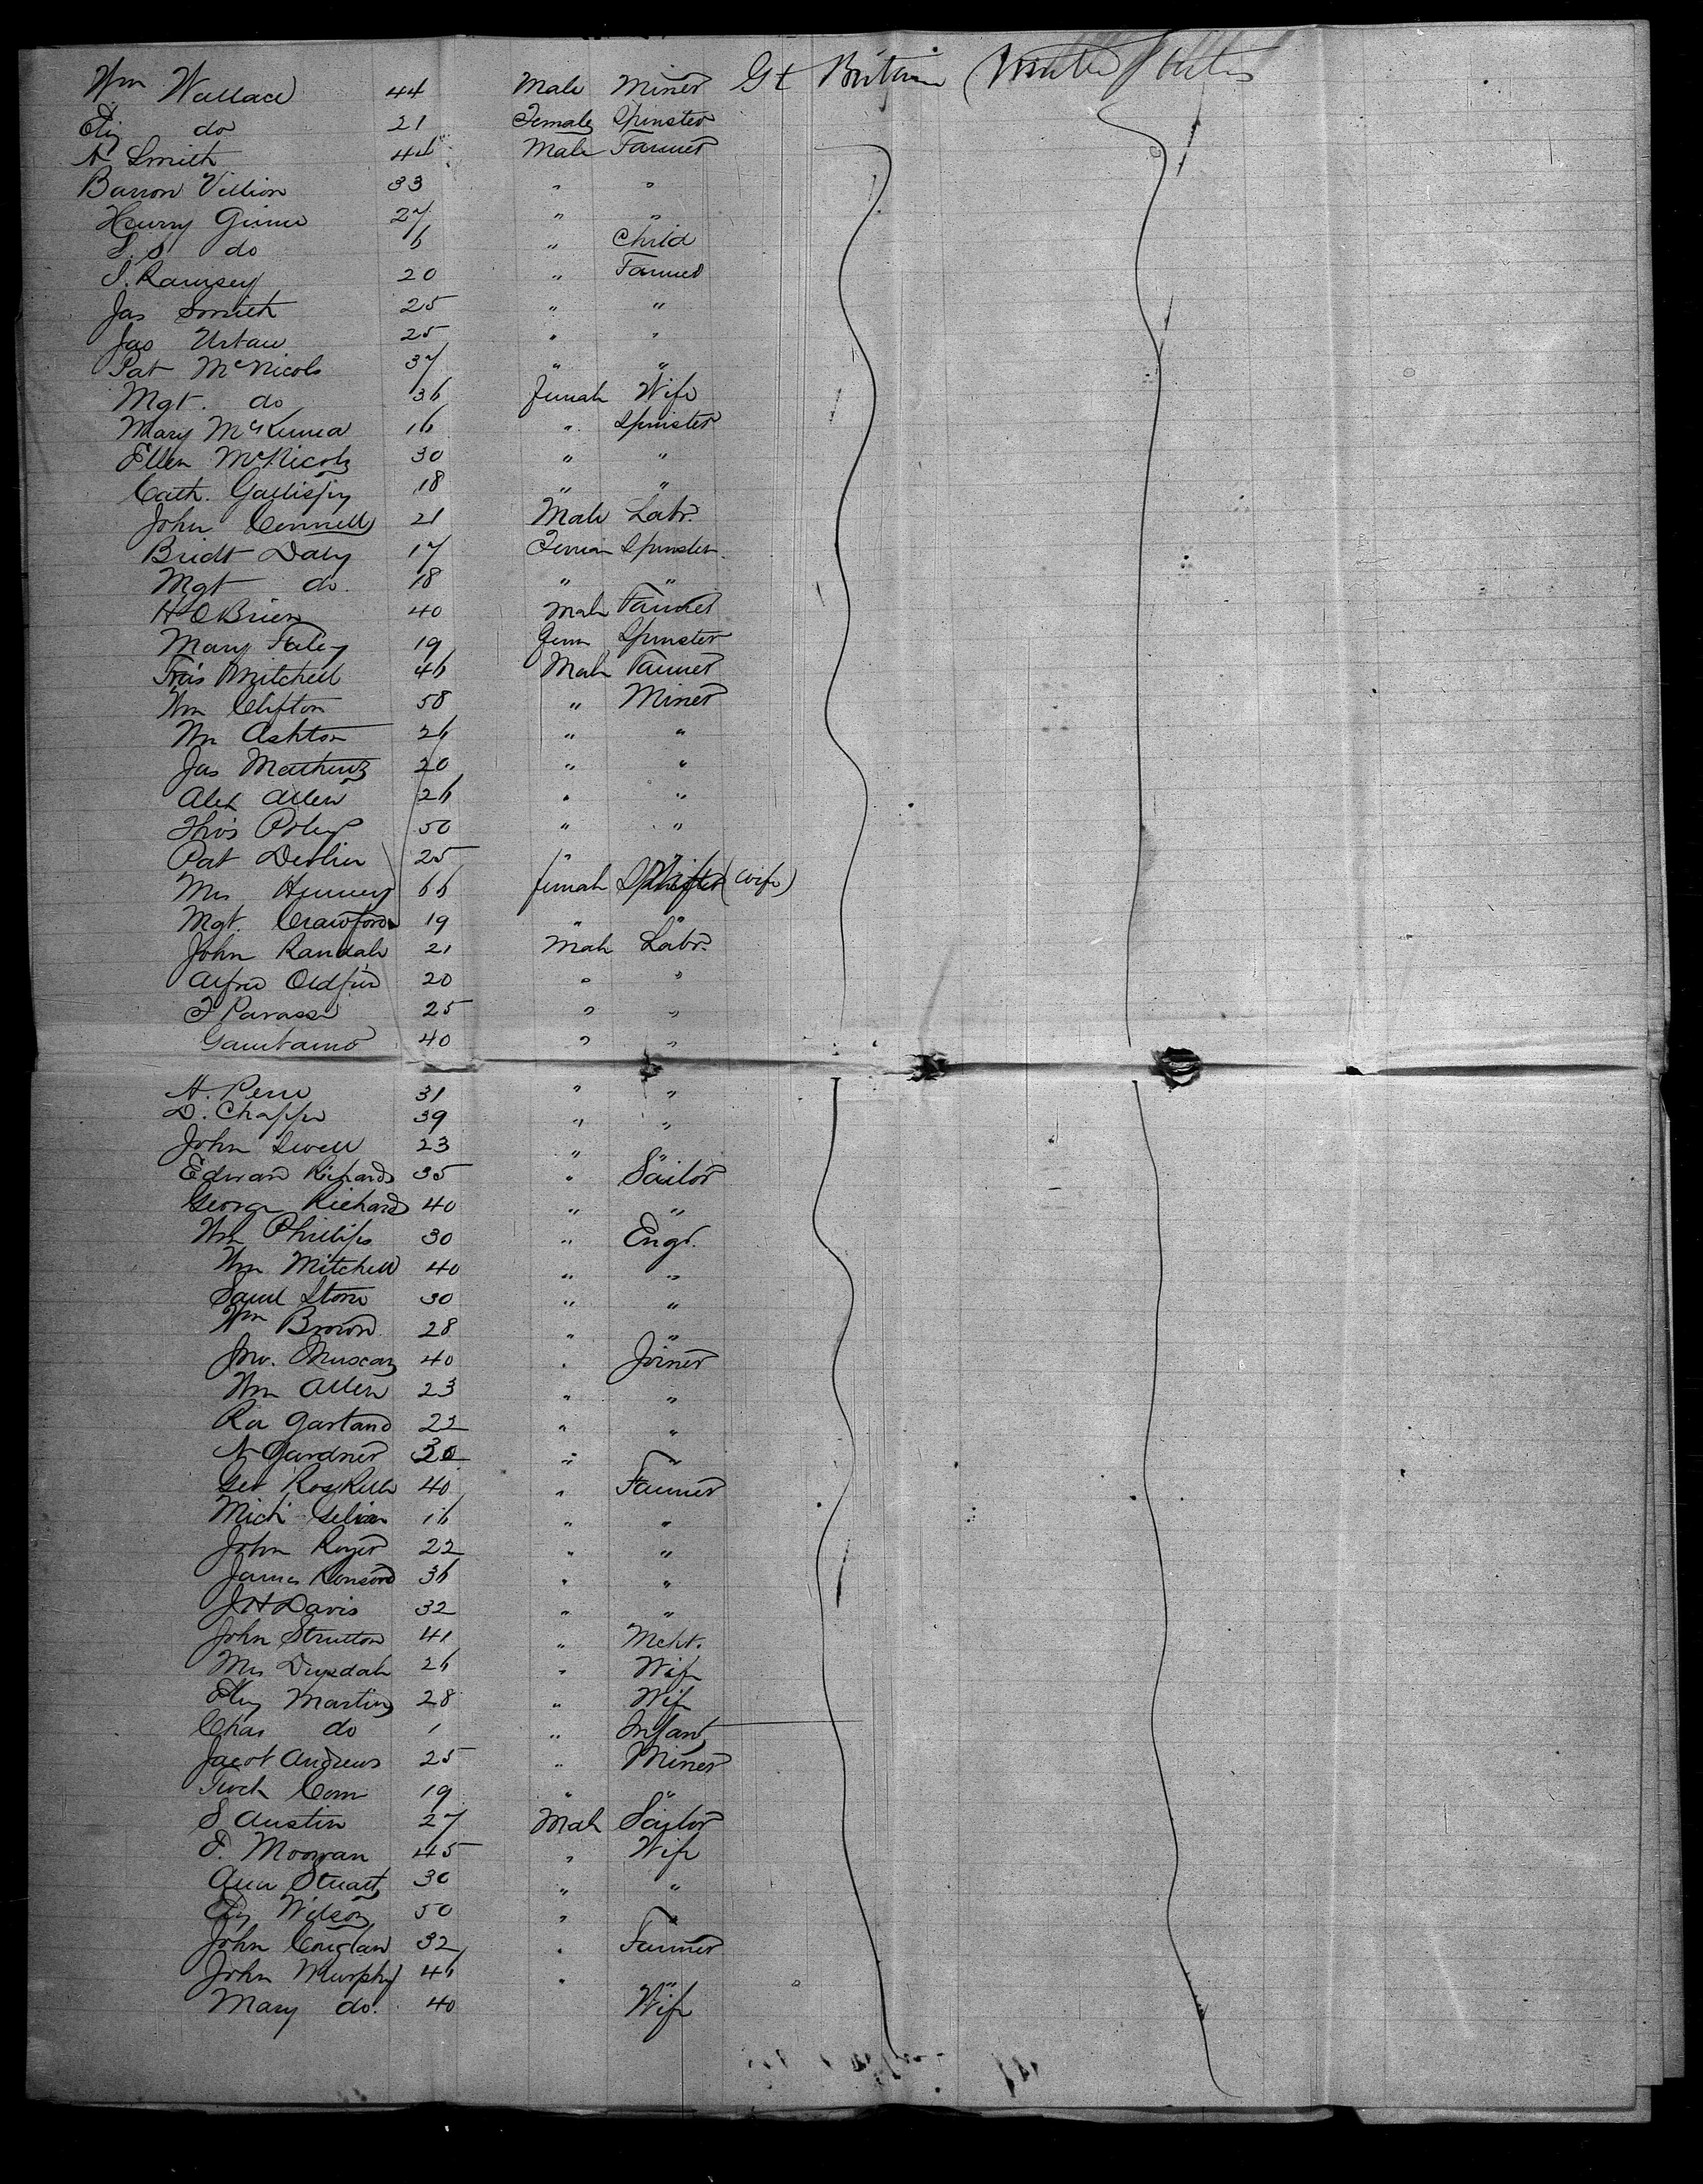 Wm Wallace 44 Male Miner Gt Britain United States
Eliz do 21 Female Spinster
A Smith 44 Male Farmer
Barron Villion 33 " "
Henry 27 " "
L. S do 6 " Child
J. Ramsey 20 " Farmer
Jas Smith 25 " "
Jas 25 " "
Pat McNicols 37 " "
Mgt. do 36 Female Wife
Mary McKenna 16 " Spinster
Ellen McNicols 30 " "
Cath. Gallispy 18 " "
John Connell 21 Male Labr.
Bridt Daly 17 Female Spinster
Mgt do. 18 " "
H O'Brien 40 Male Farmer
Mary Foley 19 Fem Spinster
Fras Mitchell 46 Male Farmer
Wm Clifton 58 " Miner
Wm Ashton 26 " "
Jas Mathews 20 " "
Alex Allen 26 " "
Thos 50 " "
Pat Devlin 25 " "
Mrs 66 Female Spinster (Wife)
Mgt. Crawford 19 " "
John Randall 21 Male Labr.
Alfred 20 " "
25 " "
40 " "
A. 31 " "
D. 39 " "
John 23 "
Edward Richards 35 " Sailor
George Richards 40 " "
Wm Phillips 30 " Engr.
Wm Mitchell 40 " "
Saml Stone 30 " "
Wm Brown 28 " "
Jno. 40 " Joiner
Wm Allen 23 " "
Garland 22 " "
A Gardner 30 " "
Geo 40 " Farmer
Mich 16 " "
John 22 " "
James 36 " "
J H Davis 32 " "
John Strutton 41 " Mcht.
Mrs 26 " Wife
Eliz Martin 28 " Wife
Chas do 1 " Infant
Jacob Andrews 25 " Miner
19 " "
S Austin 27 Male Sailor
45 " Wife
Ann Stuart 30 " "
Eliz Wilson 50 " "
John Coughlan 32 " Farmer
John Murphy 46 " "
Mary do. 40 Wife